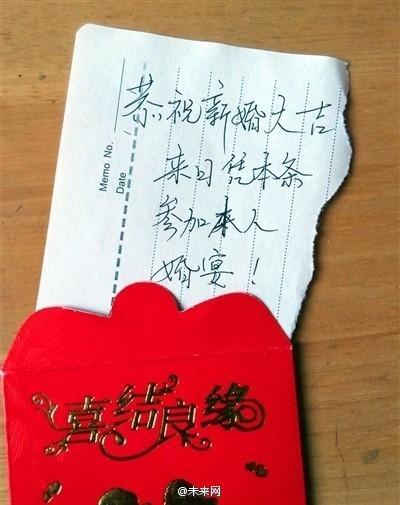 Memo No.
Date
恭祝新婚大吉
来日凭本条
参加本人
婚宴！
喜结良缘
@未来网